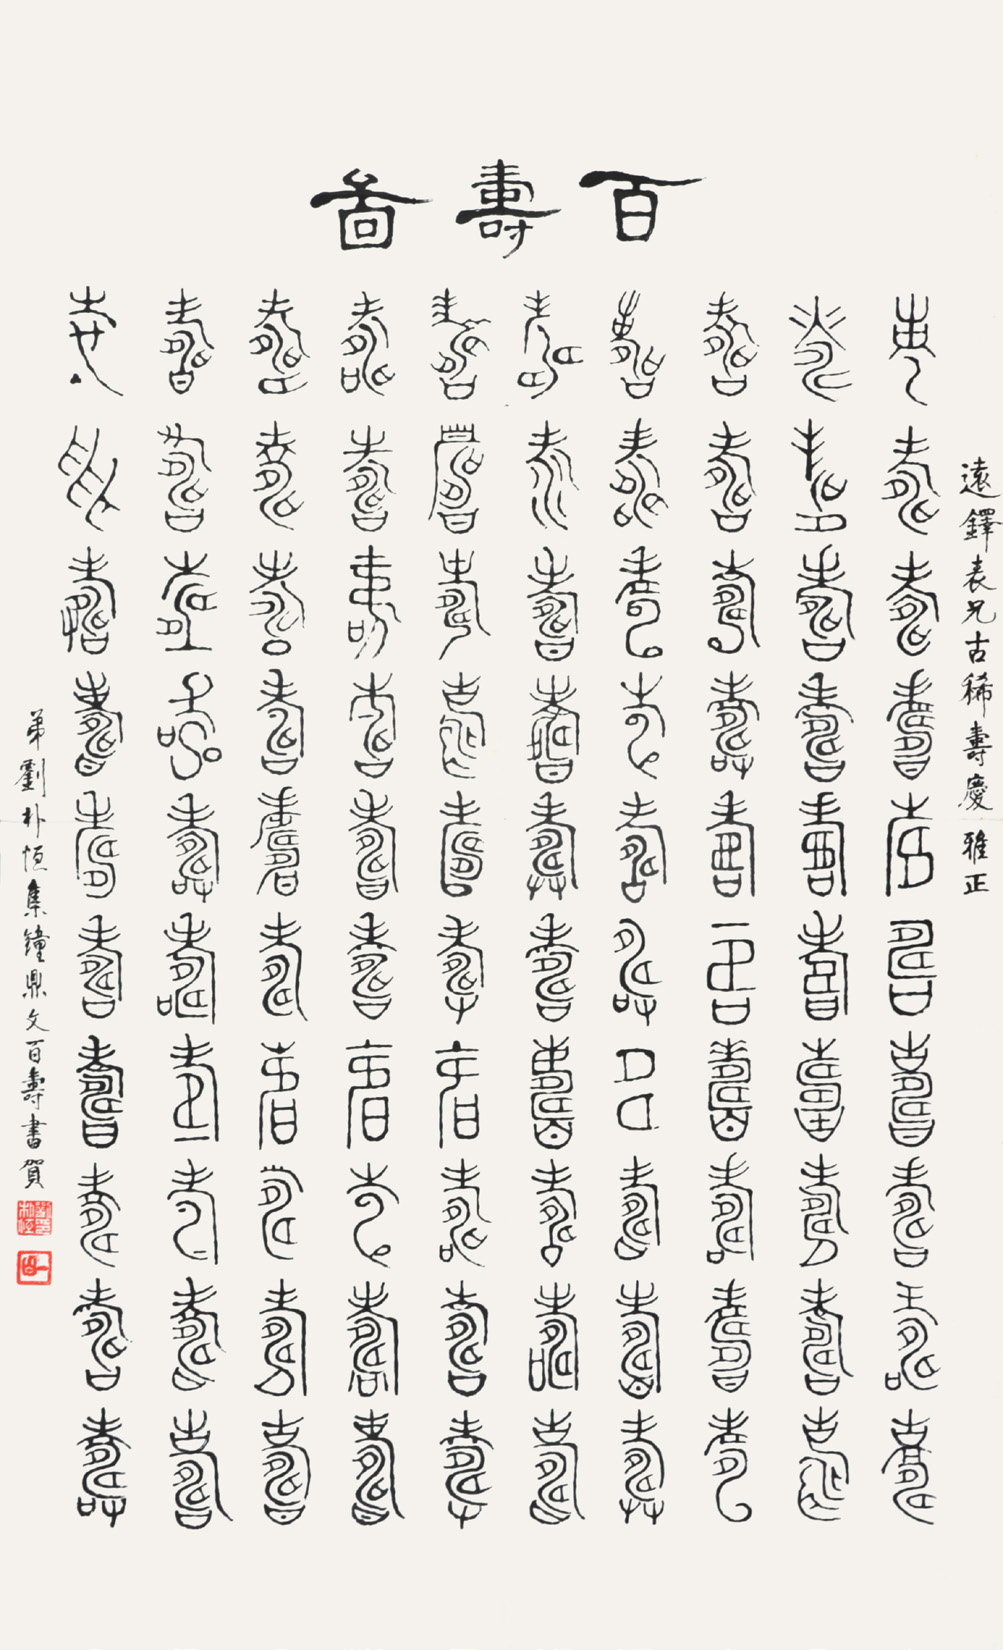 百壽啚
遠鐸表兄古稀壽慶 雅正
壽壽壽壽壽壽壽壽壽壽
壽壽壽壽壽壽壽壽壽壽
壽壽壽壽壽壽壽壽壽壽
壽壽壽壽壽壽壽壽壽壽
壽壽壽壽壽壽壽壽壽壽
壽壽壽壽壽壽壽壽壽壽
壽壽壽壽壽壽壽壽壽壽
壽壽壽壽壽壽壽壽壽壽
壽壽壽壽壽壽壽壽壽壽
壽壽壽壽壽壽壽壽壽壽
弟劉朴恒集鐘鼎文百壽書賀